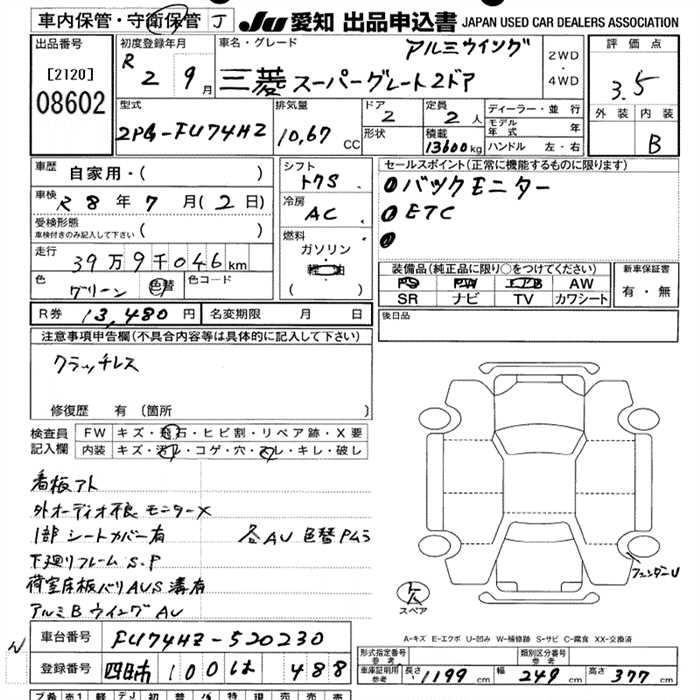 車内保管・守衛保管 J
JU 愛知 出品申込書 JAPAN USED CAR DEALERS ASSOCIATION
出品番号
[2120]
08602
初度登録年月
R 2 9月
車名・グレード
アルミウイング
三菱 スーパーグレート2ドア
2WD
・
4WD
評価点
3.5
外装 内装
B
型式
2PG-FU74HZ
排気量
10,67 CC
ドア
2
形状
定員
2 人
積載
13600kg
ディーラー・並 行
モデル年式 年
ハンドル 左・右
車歴
自家用・( )
車検
R 8 年 7 月 ( 2 日)
受検形態
車検付きのみ記入して下さい ( )
走行
39万9千046km
色
グリーン 色替
色コード
シフト
トクS
冷房
AC
燃料
ガソリン・
軽油
( )
セールスポイント(正常に機能するものに限ります)
バックモニター
ETC
装備品(純正品に限り○をつけてください)
PS PW エアB AW
SR ナビ TV カワシート
新車保証書
有・無
R券 13,480円
名変期限 月 日
後日品
注意事項申告欄(不具合内容等は具体的に記入して下さい)
クラッチレス
修復歴 有(箇所 )
検査員
記入欄
FW キズ・飛石・ヒビ割・リペア跡・X要
内装 キズ・汚レ・コゲ・穴・スレ・キレ・破レ
看板アト
外オーディオ不良 モニターX
1部 シートカバー有 各AU 色替PMう
下廻りフレーム S.P
荷室床板バリAUS 溝有
アルミB ウイングAU
フェンダーU
スペア
A-キズ E-エクボ U-凹み W-補修跡 S-サビ C-腐食 XX-交換済
車台番号 FU74HZ-520230
登録番号 四日市 100 は 488
形式指定番号
参考
類別区分番号
参考
車庫証明用
参考
長さ 1199 幅 249 高さ 377